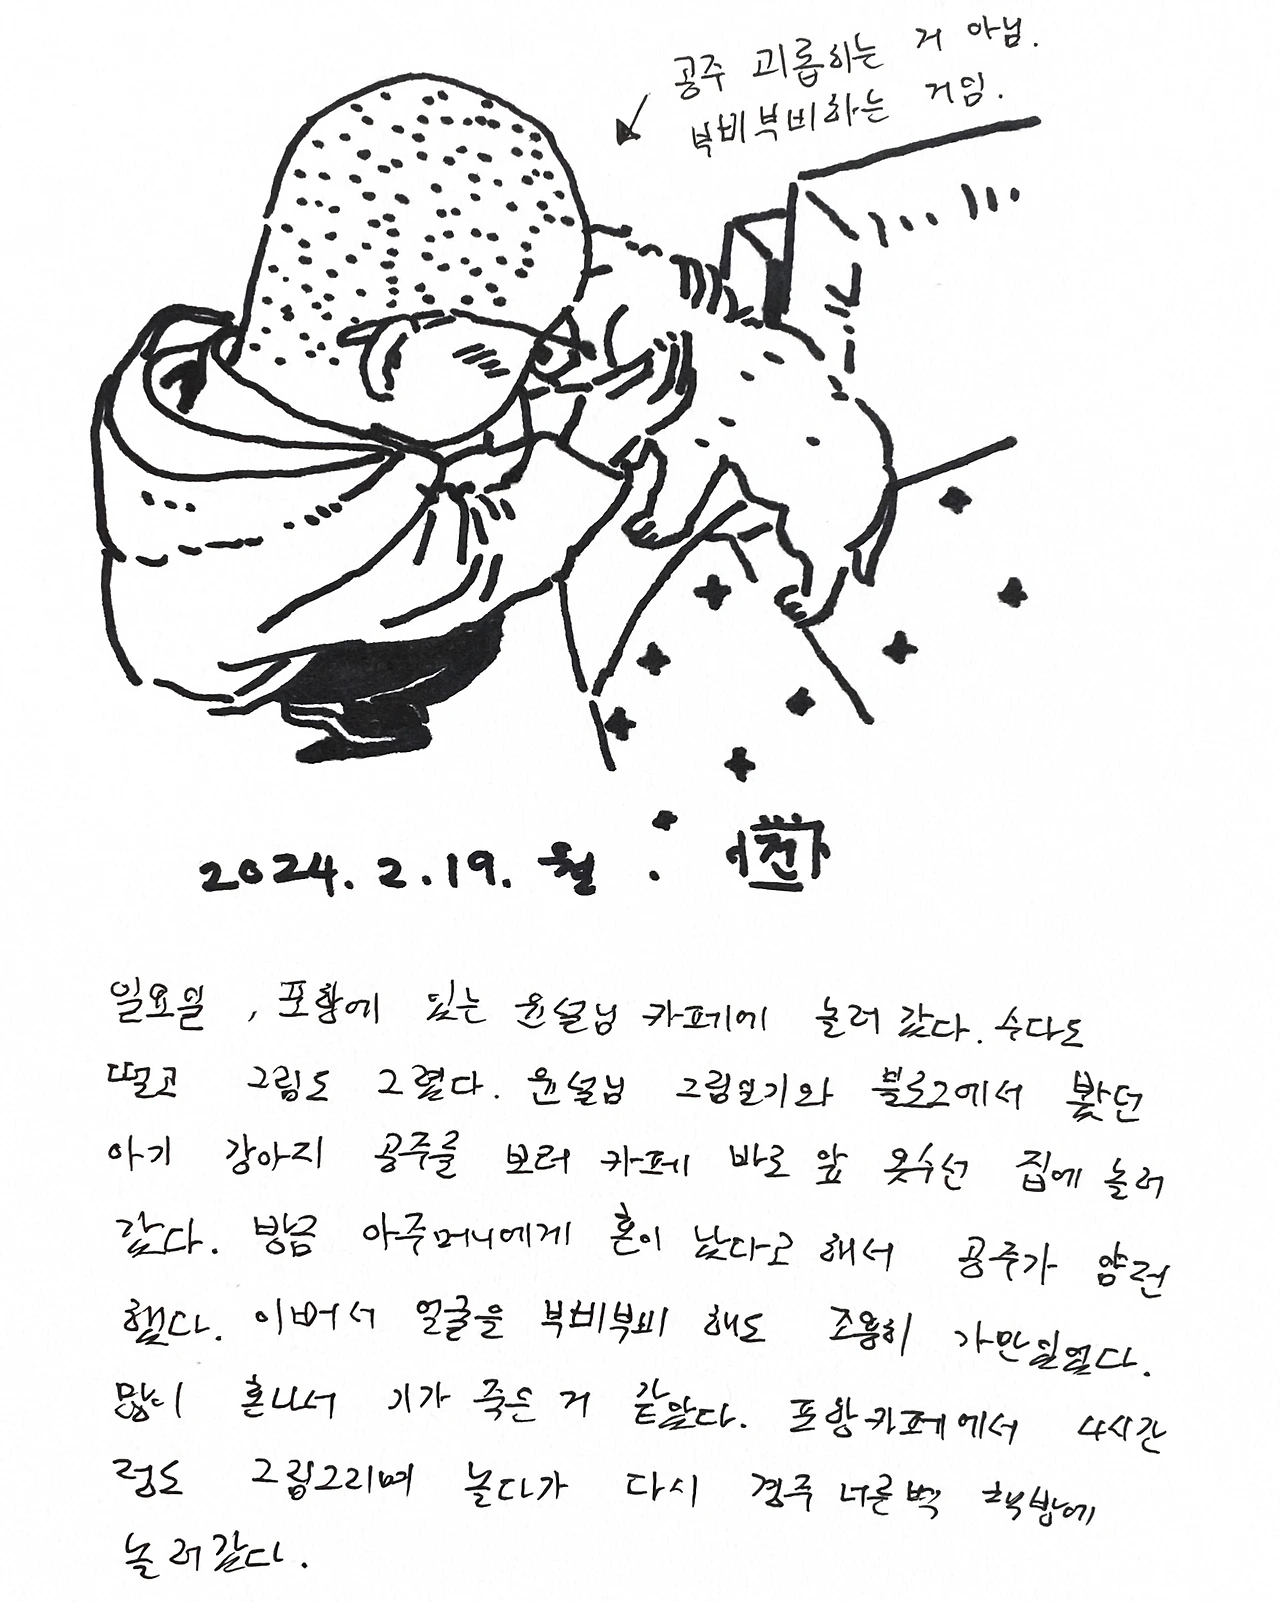 공주 괴롭히는 거 아님.
부비부비하는 거임.
2024. 2. 19. 월.
전
일요일, 포항에 있는 윤설님 카페에 놀러 갔다. 수다도
떨고 그림도 그렸다. 윤설님 그림일기와 블로그에서 봤던
아기 강아지 공주를 보러 카페 바로 앞 옷수선 집에 놀러
갔다. 방금 아주머니에게 혼이 났다고 해서 공주가 얌전
했다. 이뻐서 얼굴을 부비부비 해도 조용히 가만있었다.
많이 혼나서 기가 죽은 거 같았다. 포항카페에서 4시간
정도 그림그리며 놀다가 다시 경주 너른벽 책방에
놀러갔다.